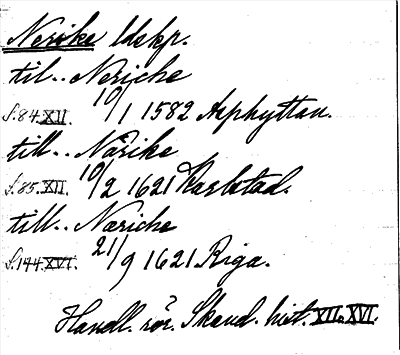 Nerike ldskp.
til.. Neriche
s. 84. XII. 10/1 1582 Asphyttan.
till.. Närike
s. 85. XII. 10/2 1621 Karlstad.
till.. Nariche
s. 144. XVI. 21/9 1621 Riga.
Handl. rör. Skand. hist. XII. XVI.